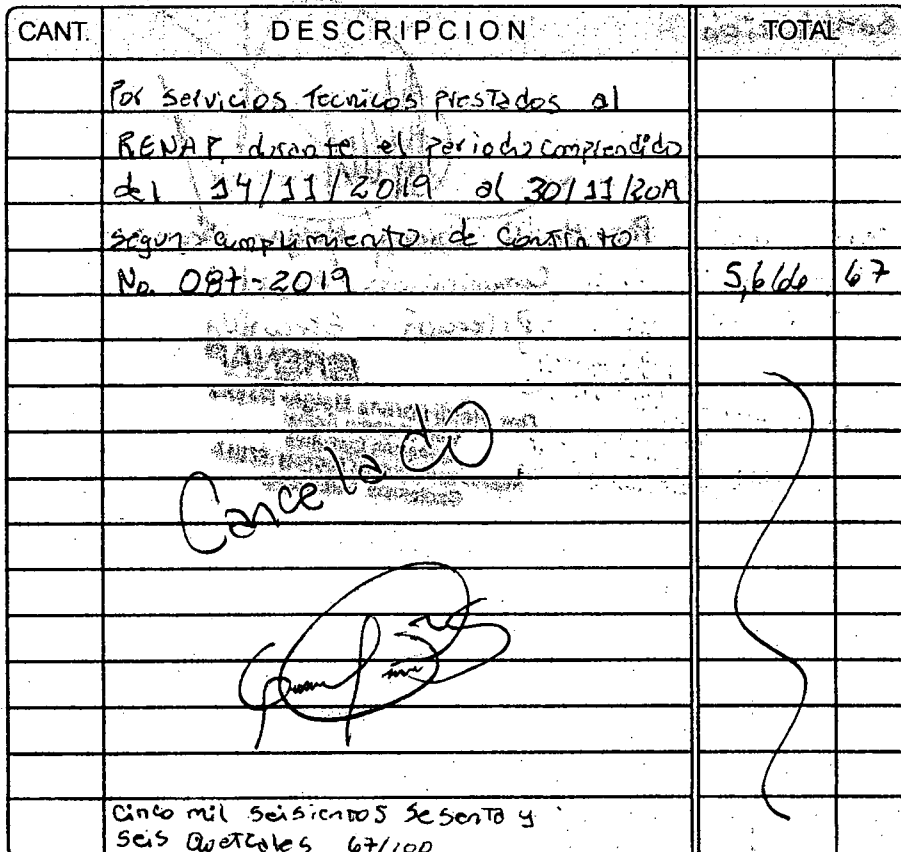 CANT. DESCRIPCION TOTAL
Por servicios Tecnicos presTados al
RENAP, durante el periodo comprendido
del 14/11/2019 al 30/11/2019
segun cumplimiento de Contrato
No. 087-2019 5,666 67
Cancelado
Cinco mil seisientos sesenta y
seis Quetzales 67/100